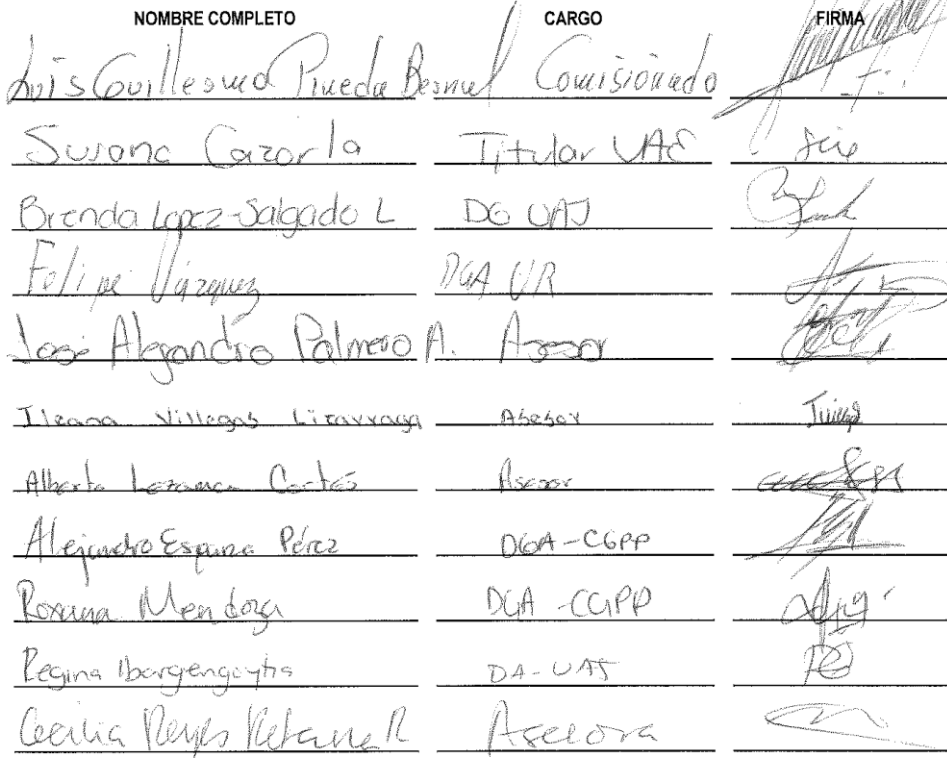 NOMBRE COMPLETO CARGO FIRMA
Luis Guillermo Pineda Bernal Comisionado
Susana Cazorla Titular UAE
Brenda Lopez-Salgado L DG UAJ
Felipe Vázquez DGA UR
José Alejandro Palmero A. Asesor
Ileana Villegas Lizarraga Asesor
Alberto Lezama Cortés Asesor
Alejandro Pérez DGA-CGPP
Roxana Mendoza DGA-CGPP
Regina Ibargengoytia DA-UAJ
Cecilia Reyes Retana R Asesora